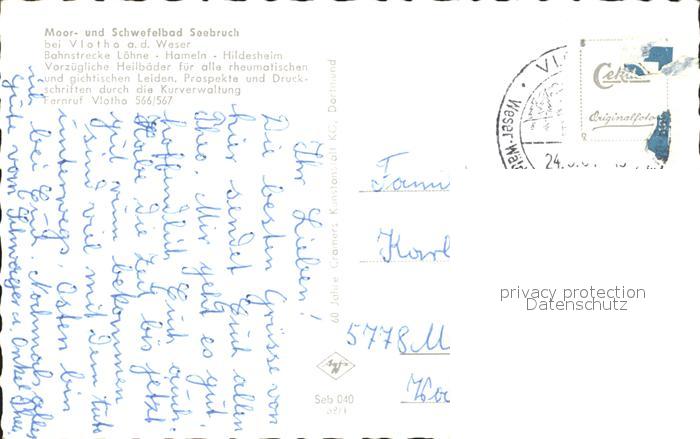 Moor- und Schwefelbad Seebruch
bei Vlotho a.d. Weser
Bahnstrecke Löhne - Hameln - Hildesheim
Vorzügliche Heilbäder für alle rheumatischen
und gichtischen Leiden. Prospekte und Druck-
schriften durch die Kurverwaltung
Fernruf Vlotho 566/567
Ihr Lieben!
Die besten Grüsse von
hier sendet Euch allen
Theo. Mir geht es gut.
hoffendlich Euch auch.
Habe die Zeit bis jetzt
gut rum bekommen
sind viel mit dem Auto
unterwegs. Osten bin
ich bei Euch. Nochmals alles
gute vom Schwager u. Onkel Theo.
60 Jahre Cramers Kunstanstalt KG, Dortmund
Agfa
Seb 040
Cekade
Originalfoto
VL
Weser
24.
Fami
Karl
5778 M
privacy protection
Datenschutz